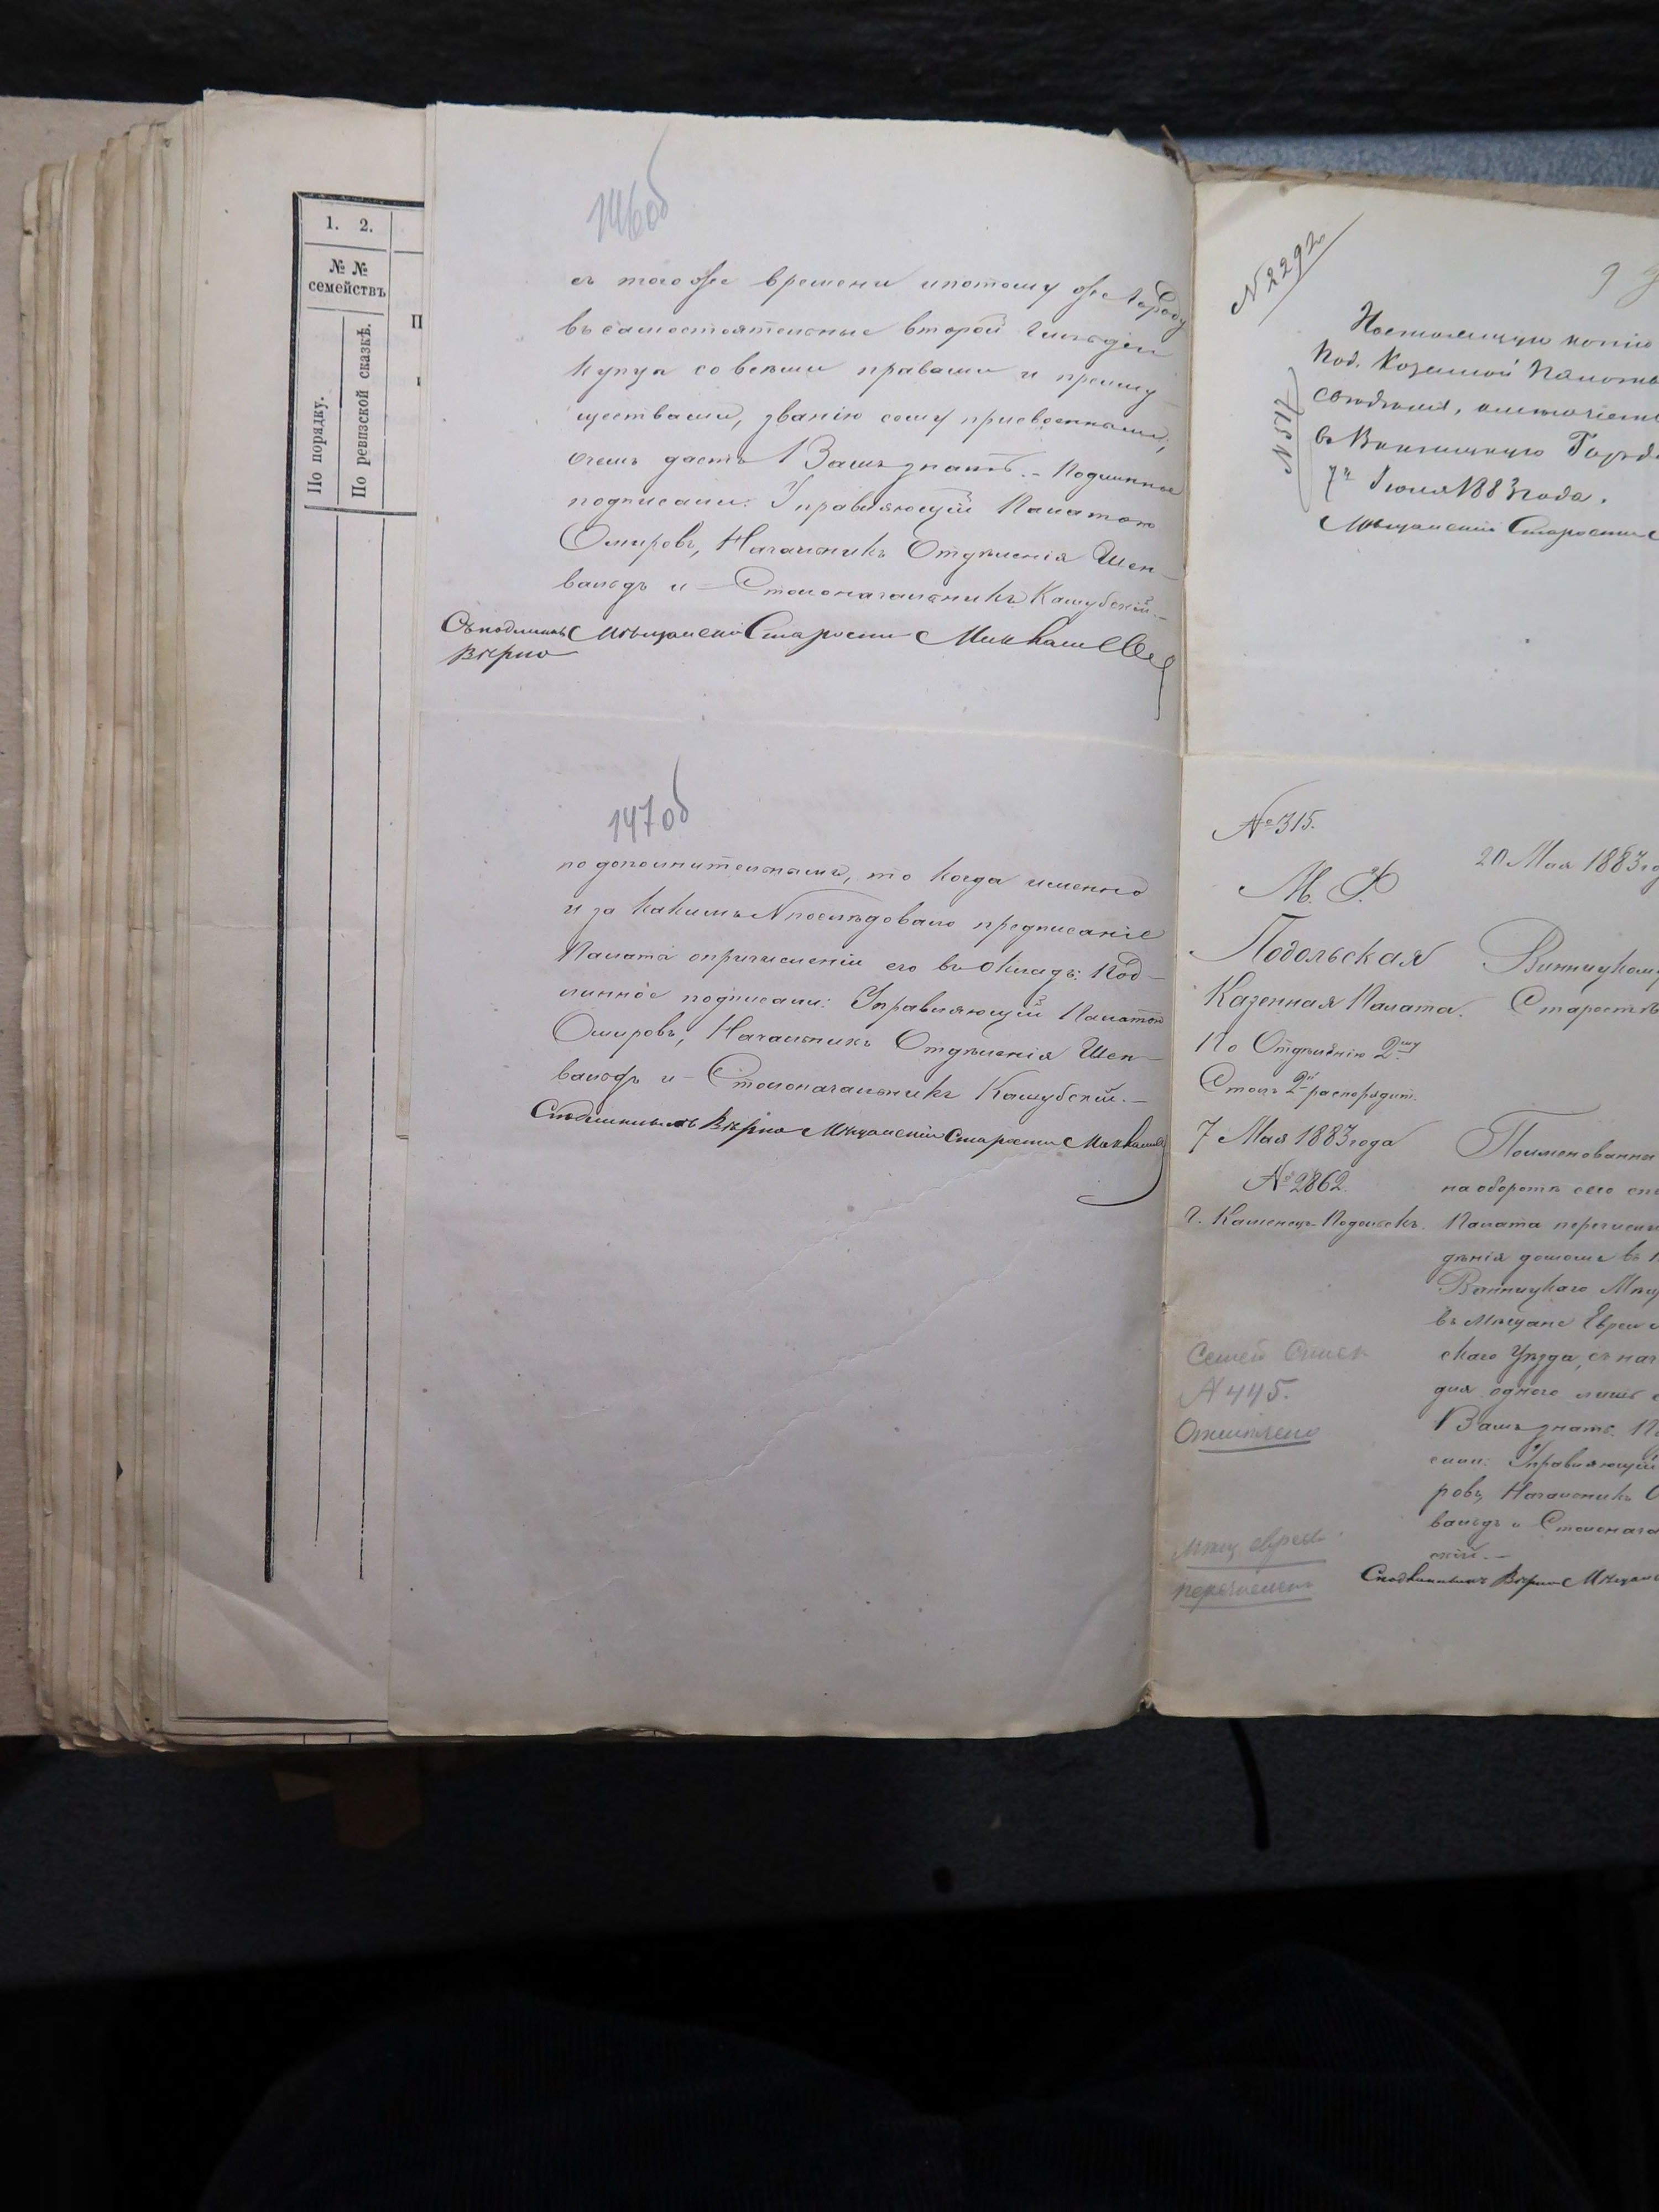 1. 2.
№ №
семействъ
По порядку.
По ревизской сказкѣ.
П
146об
съ того же времени ипотому же Городу
въ самостоятельные второй гильдіи
купца совсѣми правами и преиму
ществами, званію сему присвоенными,
очемъ даетъ Вамъ знать. - Подлинное
подписали: Управляющій Палатою
Омировъ, Начальникъ Отдѣленія Шен-
вальдъ и - Столоначальникъ Кашубскій. -
Съ подлиннымъ Мѣщанскій Староста
Вѣрно
147об
по дополнительнымъ, то когда именно
и за какимъ № послѣдовало предписаніе
Палаты опричисленіи его въ окладъ: Под-
линное подписали: Управляющій Палатою
Омировъ, Начальникъ Отдѣленія Шен-
вальдъ и - Столоначальникъ Кашубскій. -
Сподлиннымъ Вѣрно Мѣщанскій Староста
№ 2292
№ 517
Настоящую копію
Под. Казенной Палаты
въ Винницкую Город
7го Іюня 1883 года.
Мѣщанскій Староста
№ 315.
20 Мая 1883 го
М. Ф.
Подольская
Казенная Палата.
По Отдѣленію 2му
Столъ 2й распорядит.
7 Мая 1883 года
№ 2862.
г. Каменецъ-Подольскъ.
Винницкому
Старостѣ
Поименованны
на оборотѣ сего
Палата перечисл
дѣнія домомъ въ
Винницкаго Мѣщ
въ мѣщане Евреи
скаго Уѣзда, съ нач
для одного лишь
Вамъ знать. По
сали: Управляющій
ровъ, Начальникъ О
вальдъ и Столонача
скій. -
Сподлиннымъ Вѣрно Мѣщанс
Семей Списк
№ 445.
Отмѣчено
мѣщ. евреи
перечислен